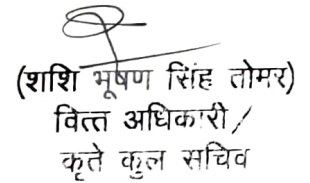 (शशि भूषण सिंह तोमर)
वित्त अधिकारी /
कृते कुल सचिव